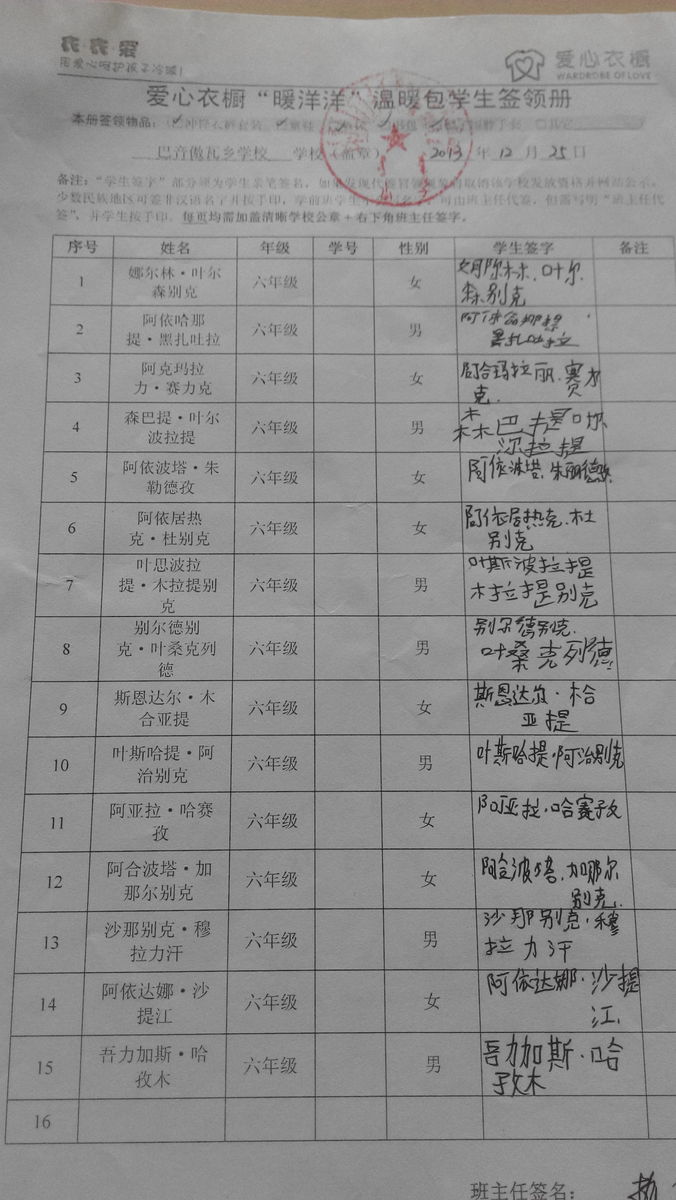 衣·衣·爱
用爱心呵护孩子冷暖!
爱心衣橱
WARDROBE OF LOVE
爱心衣橱“暖洋洋”温暖包学生签领册
本册签领物品:
巴音傲瓦乡学校 学校(盖章) 2013 年 12 月 25 日
备注:“学生签字”部分须为学生亲笔签名,如果发现代签冒领
少数民族地区可签非汉语名字并按手印,学前班学生 可由班主任代签,但需写明“班主任代
签”,并学生按手印。每页均需加盖清晰学校公章+右下角班主任签字。
序号 姓名 年级 学号 性别 学生签字 备注
1 娜尔林·叶尔森别克 六年级 女 娜尔林·叶尔森别克
2 阿依哈那提·黑扎吐拉 六年级 男 阿依哈那提黑扎吐拉
3 阿克玛拉力·赛力克 六年级 女
4 森巴提·叶尔波拉提 六年级 男 森巴提叶尔波拉提
5 阿依波塔·朱勒德孜 六年级 女 阿依波塔·朱丽德孜
6 阿依居热克·杜别克 六年级 女 阿依居热克·杜别克
7 叶思波拉提·木拉提别克 六年级 男 叶斯波拉提木拉提别克
8 别尔德别克·叶桑克列德 六年级 男 别尔德别克·叶桑克列德
9 斯恩达尔·木合亚提 六年级 女 斯恩达尔·木合亚提
10 叶斯哈提·阿治别克 六年级 男 叶斯哈提·阿治别克
11 阿亚拉·哈赛孜 六年级 女 阿亚拉·哈赛孜
12 阿合波塔·加那尔别克 六年级 女 阿合波塔·加那尔别克
13 沙那别克·穆拉力汗 六年级 男 沙那别克·穆拉力汗
14 阿依达娜·沙提江 六年级 女 阿依达娜·沙提江
15 吾力加斯·哈孜木 六年级 男 吾力加斯·哈孜木
16
班主任签名: